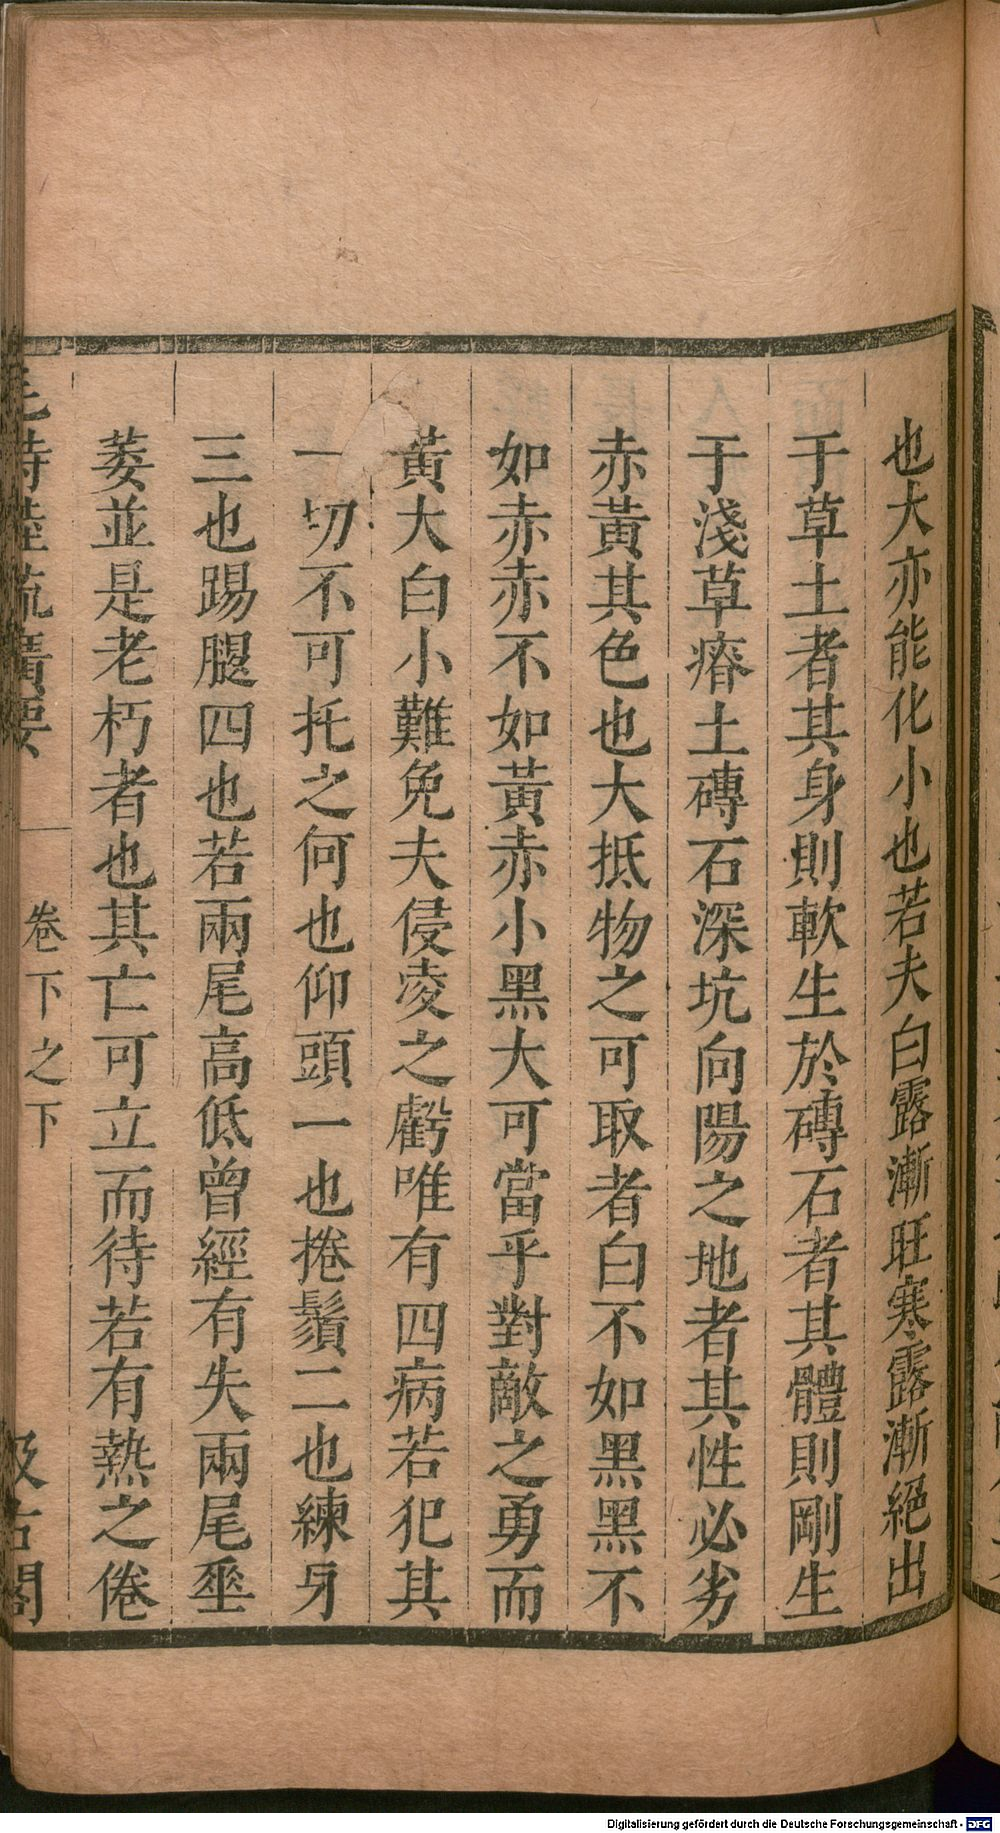 也大亦能化小也若夫白露漸旺寒露漸絕出
于草土者其身則軟生於磚石者其體則剛生
于淺草瘠土磚石深坑向陽之地者其性必劣
赤黃其色也大抵物之可取者白不如黑黑不
如赤赤不如黃赤小黑大可當乎對敵之勇而
黃大白小難免夫侵凌之虧唯有四病若犯其
一切不可托之何也仰頭一也捲鬚二也練牙
三也踢腿四也若兩尾高低曾經有失兩尾垂
萎並是老朽者也其亡可立而待若有熱之倦
毛詩陸疏廣要 卷下之下 汲古閣
Digitalisierung gefördert durch die Deutsche Forschungsgemeinschaft - DFG